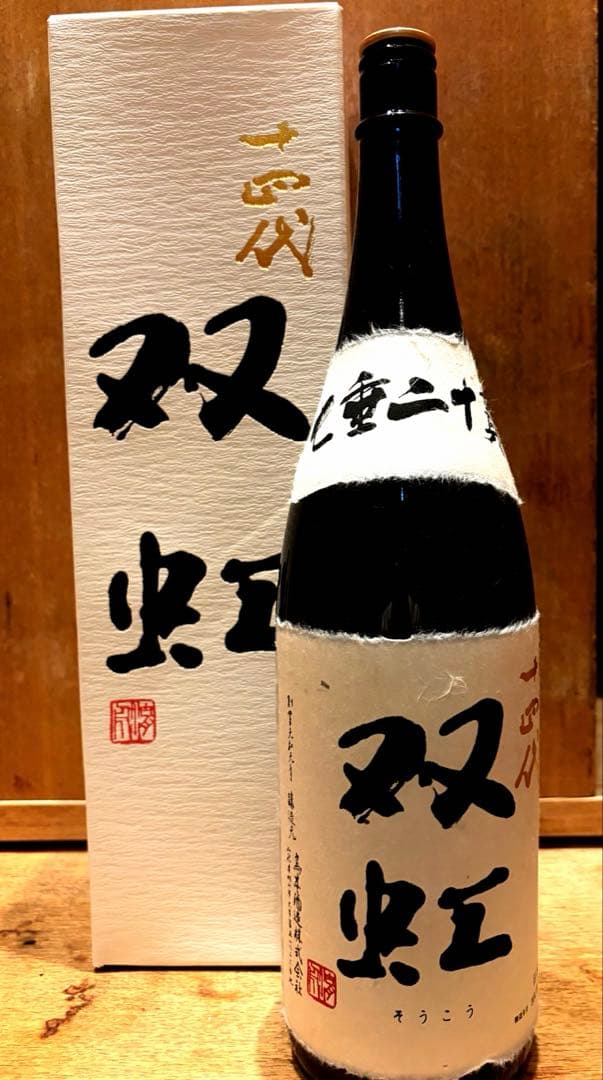 十四代
双虹
七垂二十
十四代
双虹
そうこう
醸造元 高木酒造株式会社